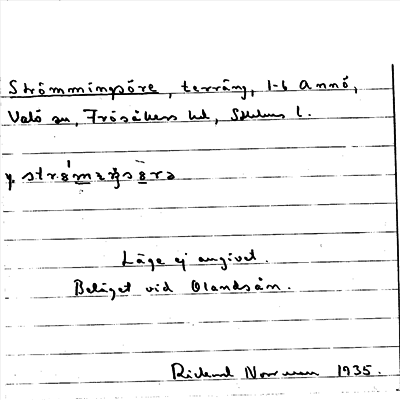 Strömmingsöre, terräng, 1-6 Annö,
Valö sn, Frösåkers hd, Sthlms l.
Läge ej angivet.
Beläget vid Olandsån.
Rickard Norrman 1935.